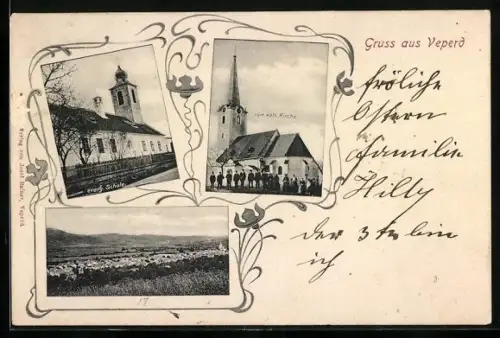 Gruss aus Veperd
röm. kath. Kirche
evang. Schule
Verlag von Josef Hafner, Veperd.
fröhliche
Ostern
Familie
Hilly
der
bin
ich